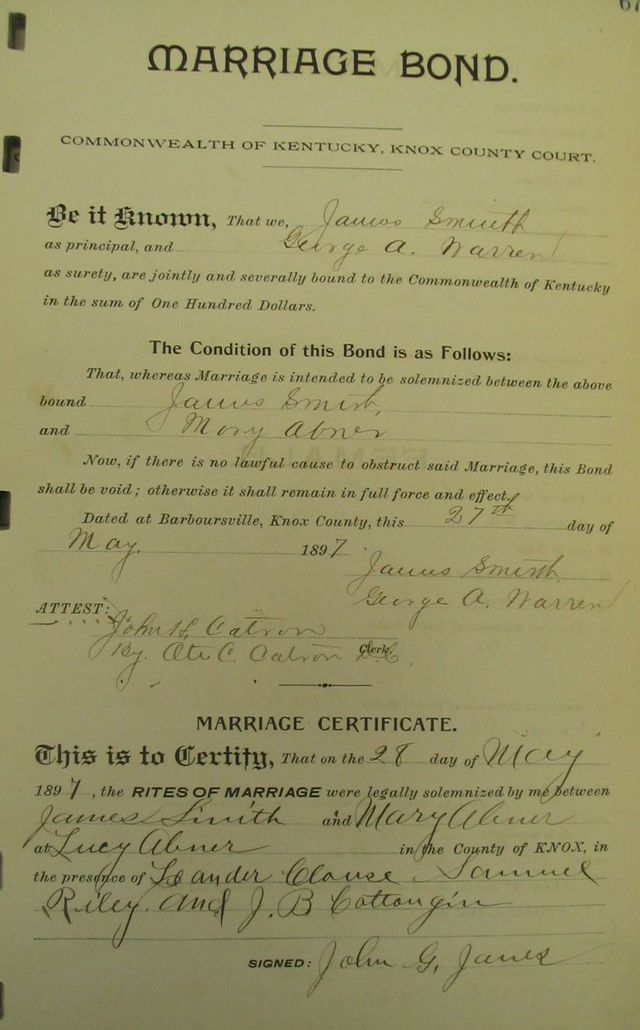 67
MARRIAGE BOND.
COMMONWEALTH OF KENTUCKY, KNOX COUNTY COURT.
Be it Known, That we, James Smith
as principal, and George A. Warren
as surety, are jointly and severally bound to the Commonwealth of Kentucky
in the sum of One Hundred Dollars.
The Condition of this Bond is as Follows:
That, whereas Marriage is intended to be solemnized between the above
bound James Smith,
and Mary Abner
Now, if there is no lawful cause to obstruct said Marriage, this Bond
shall be void; otherwise it shall remain in full force and effect.
Dated at Barboursville, Knox County, this 27th day of
May. 1897
James Smith.
George A. Warren
ATTEST:
John H. Catron
By. Ote C. Catron Clerk. D.C.
MARRIAGE CERTIFICATE.
This is to Certify, That on the 28 day of May
1897, the RITES OF MARRIAGE were legally solemnized by me between
James Smith and Mary Abner
at Lucy Abner in the County of KNOX, in
the presence of Leander Clouse Samuel
Riley. and J. B Cottongin
SIGNED: John G. Janes